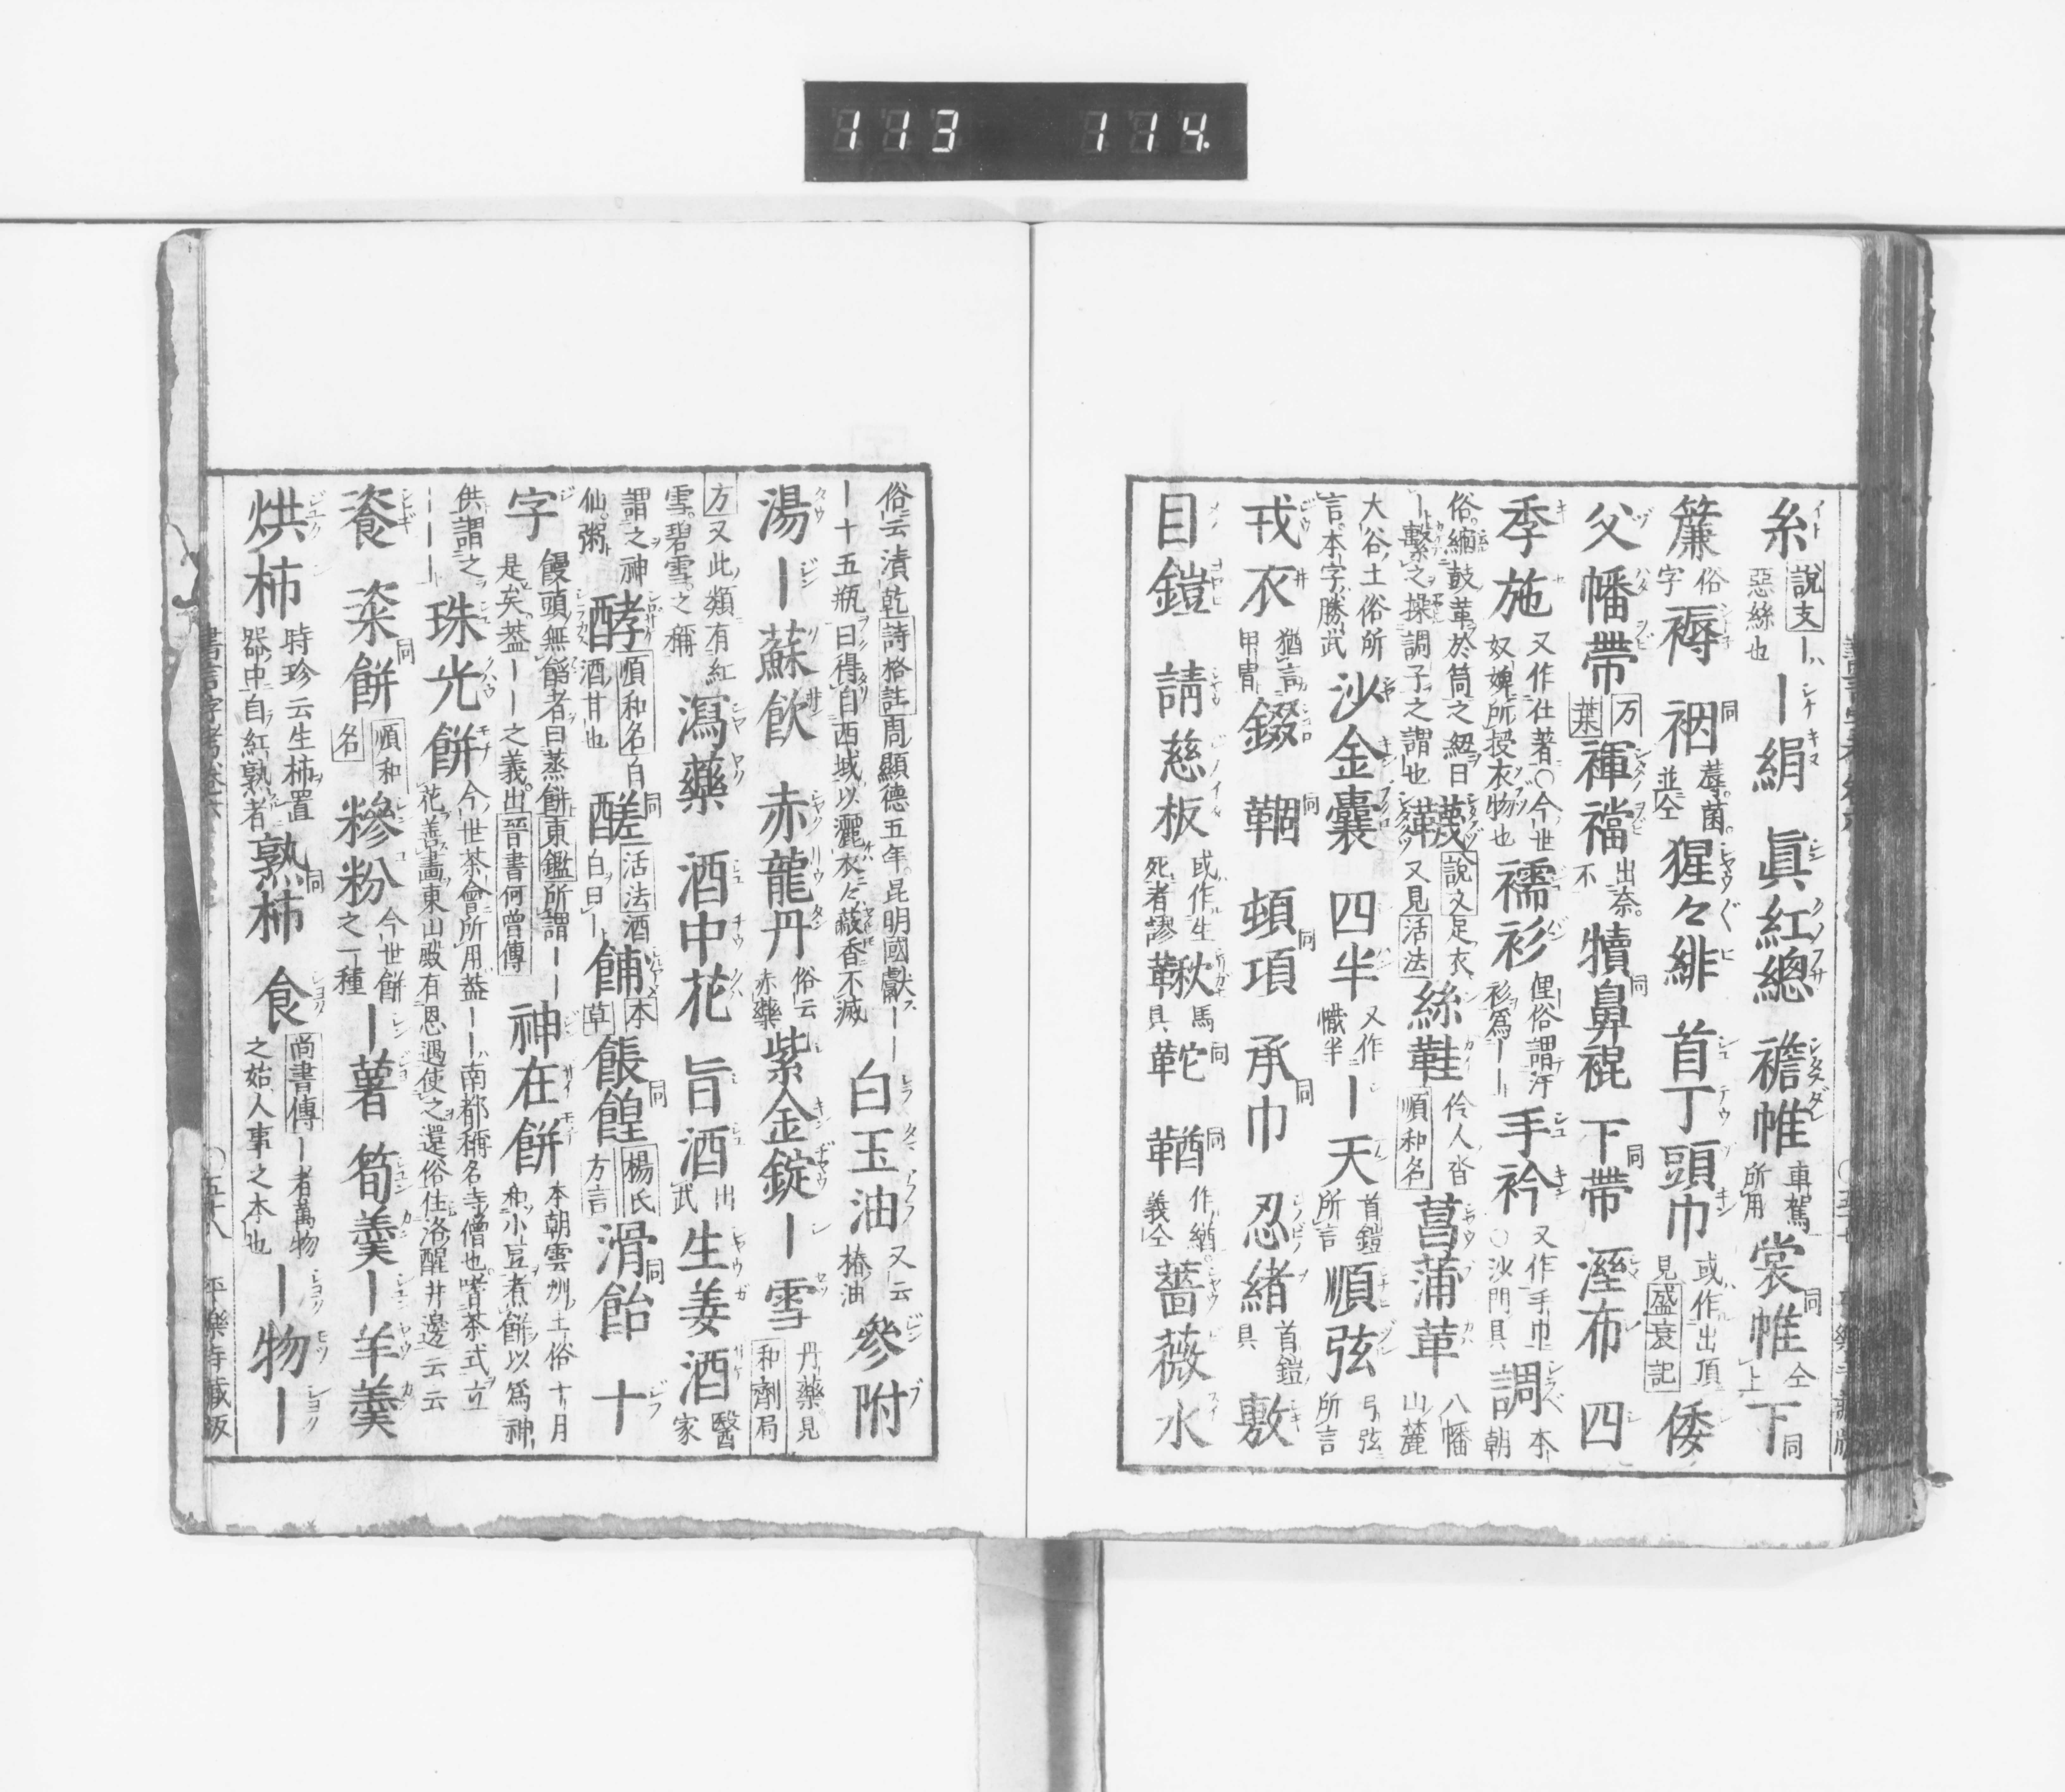 113 114.
糸 説文ーハ惡絲也 ー絹 眞紅總 襜帷 車駕所用 裳帷 同仝上 下同
簾 俗字 褥 裀 同蓐菌並仝 猩々緋 首丁頭巾 或作出頂見盛衰記 倭
父幡帶 万葉 褌襠 出奈不 犢鼻裩 同 下帶 同 溼布 四
季施 又作仕著○今世奴婢所授衣物也 襦衫 俚俗謂汗衫爲ーー 手衿 又作手巾○沙門具 調 本朝
俗縮鼓革於筒之紐曰ー繫之操調子之謂也 韈 説文足衣又見活法 絲鞋 伶人沓順和名 菖蒲革 八幡山麓
大谷土俗所言本字勝武 沙金嚢 四半 又作幟半 ー天 首鎧所言 順弦 弓弦所言
戎衣 猶言甲冑 錣 䩠 同 頓項 同 承巾 同 忍緒 首鎧具 敷
目鎧 請慈板 或作生死者謬 鞦 馬具 鞁 同 䩱 同作緧義仝 薔薇水
俗云漬乾詩格註周顯德五年昆明國獻ーー
ー十五瓶曰得自西域以灑衣々敝香不滅 白玉油 又云椿油 參附
湯 ー蘇飲 赤龍丹 俗云赤藥 紫金錠 ー雪 丹藥見和劑局
方又此類有紅雪碧雪之稱 瀉藥 酒中花 旨酒 出武 生姜酒 醫家
謂之神仙粥 酵 順和名白酒甘也 醝 同活法酒白曰ー 餔 本草 餦餭 同楊氏方言 滑飴 同 十
字 饅頭無餡者曰蒸餅東鑑所謂ーー是矣蓋ーー之義出晉書何曾傳 神在餅 本朝雲州土俗十月和小豆煮餅以爲神
供謂之ーーー 珠光餅 今世茶會所用蓋ーー南都稱名寺僧也嗜茶式立花善畵東山殿有恩遇使之還俗住洛醒井邊云云
餈 粢餅 同順和名 糝粉 今世餅之一種 ー薯 筍羹 ー羊羹
烘柿 時珍云生柿置器中自紅熟者 熟柿 同 食 尚書傳ー者萬物之始人事之本也 ー物 ー
書言字考卷六 ○五十八 平樂寺藏版